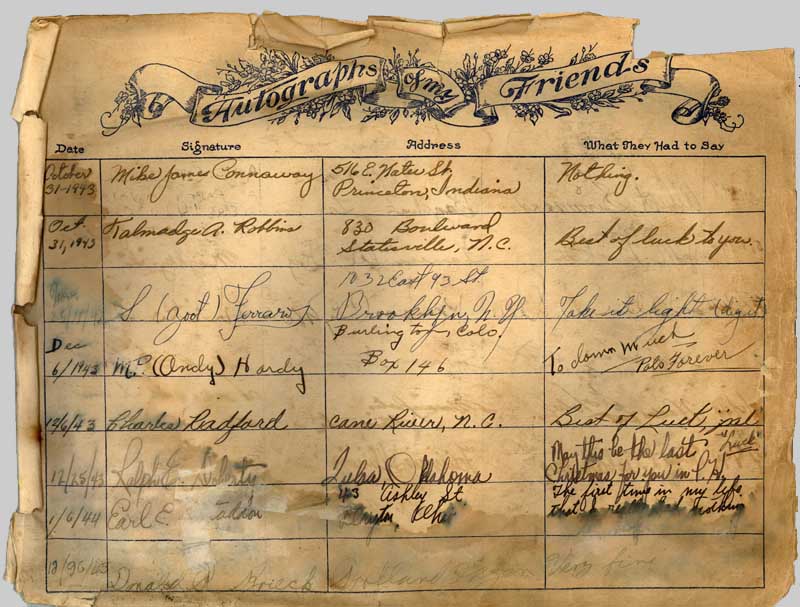 Autographs of my Friends
Date Signature Address What They Had to Say
October 31-1943 Mike James Connaway 516 E. Water St. Nothing.
Princeton, Indiana
Oct. 31, 1943 Talmadge A. Robbins 830 Boulevard Best of luck to you.
Statesville, N.C.
1032 East 93 St.
S. (goot) Ferraro Brooklyn, N.Y. Take it light (dig it
Dec 6/1943 Mc (Andy) Hardy Burlington, Colo. To damn much
Box 146 Pals Forever
12/6/43 Charles Radford Cane River, N.C. Best of Luck, pal
"Luck"
12/25/43 Ralph E. Tulsa Oklahoma May this be the last
Christmas for you in
1/6/44 Earl E. 43 Ashley St The first time in my life
Dayton, Ohio that
Donald